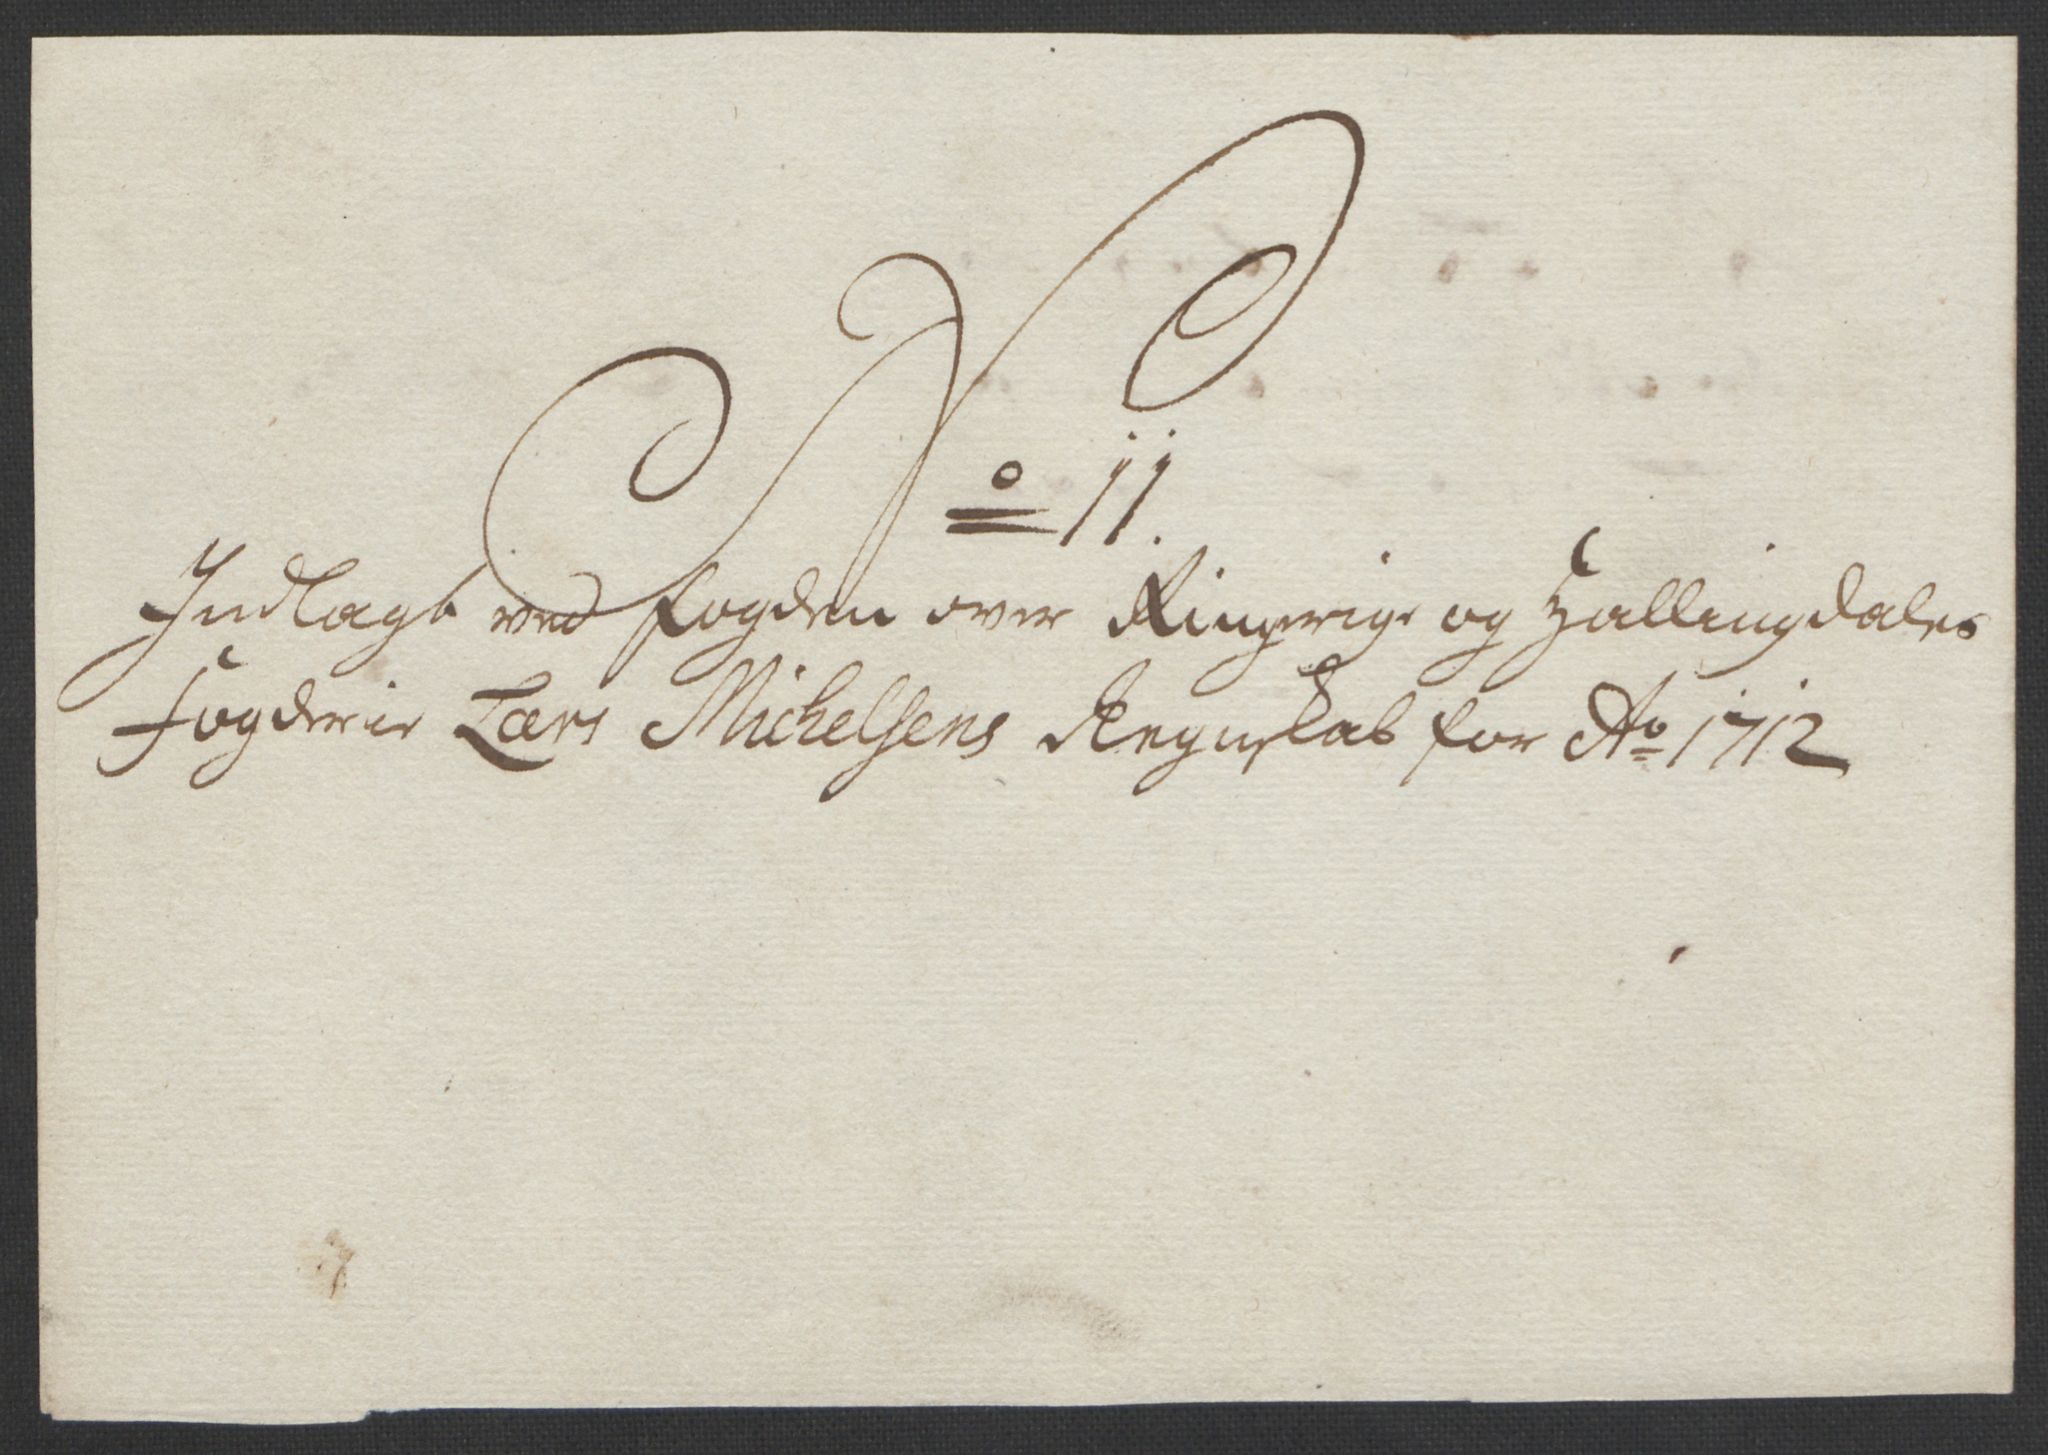 No 11.
Indlagt ved fogden over Ringerige og Hallingdales
Fogderie Lars Michelsens Regnskab for Ao 1712